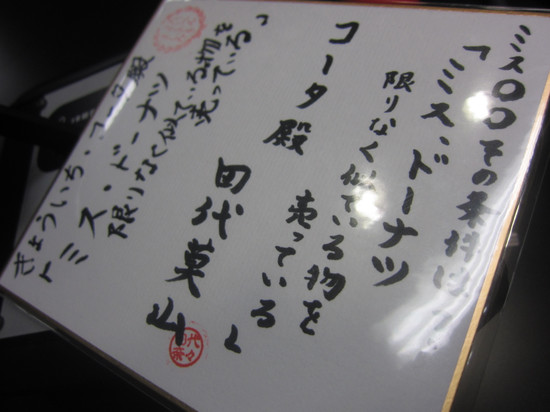 ミス〇〇その条件は?
「ミス・ドーナツ
限りなく似ている物を
売っている」
コータ殿
田代
きょういち・コータ殿
ミス・ドーナツ
限りなく似ている物を
売っている」